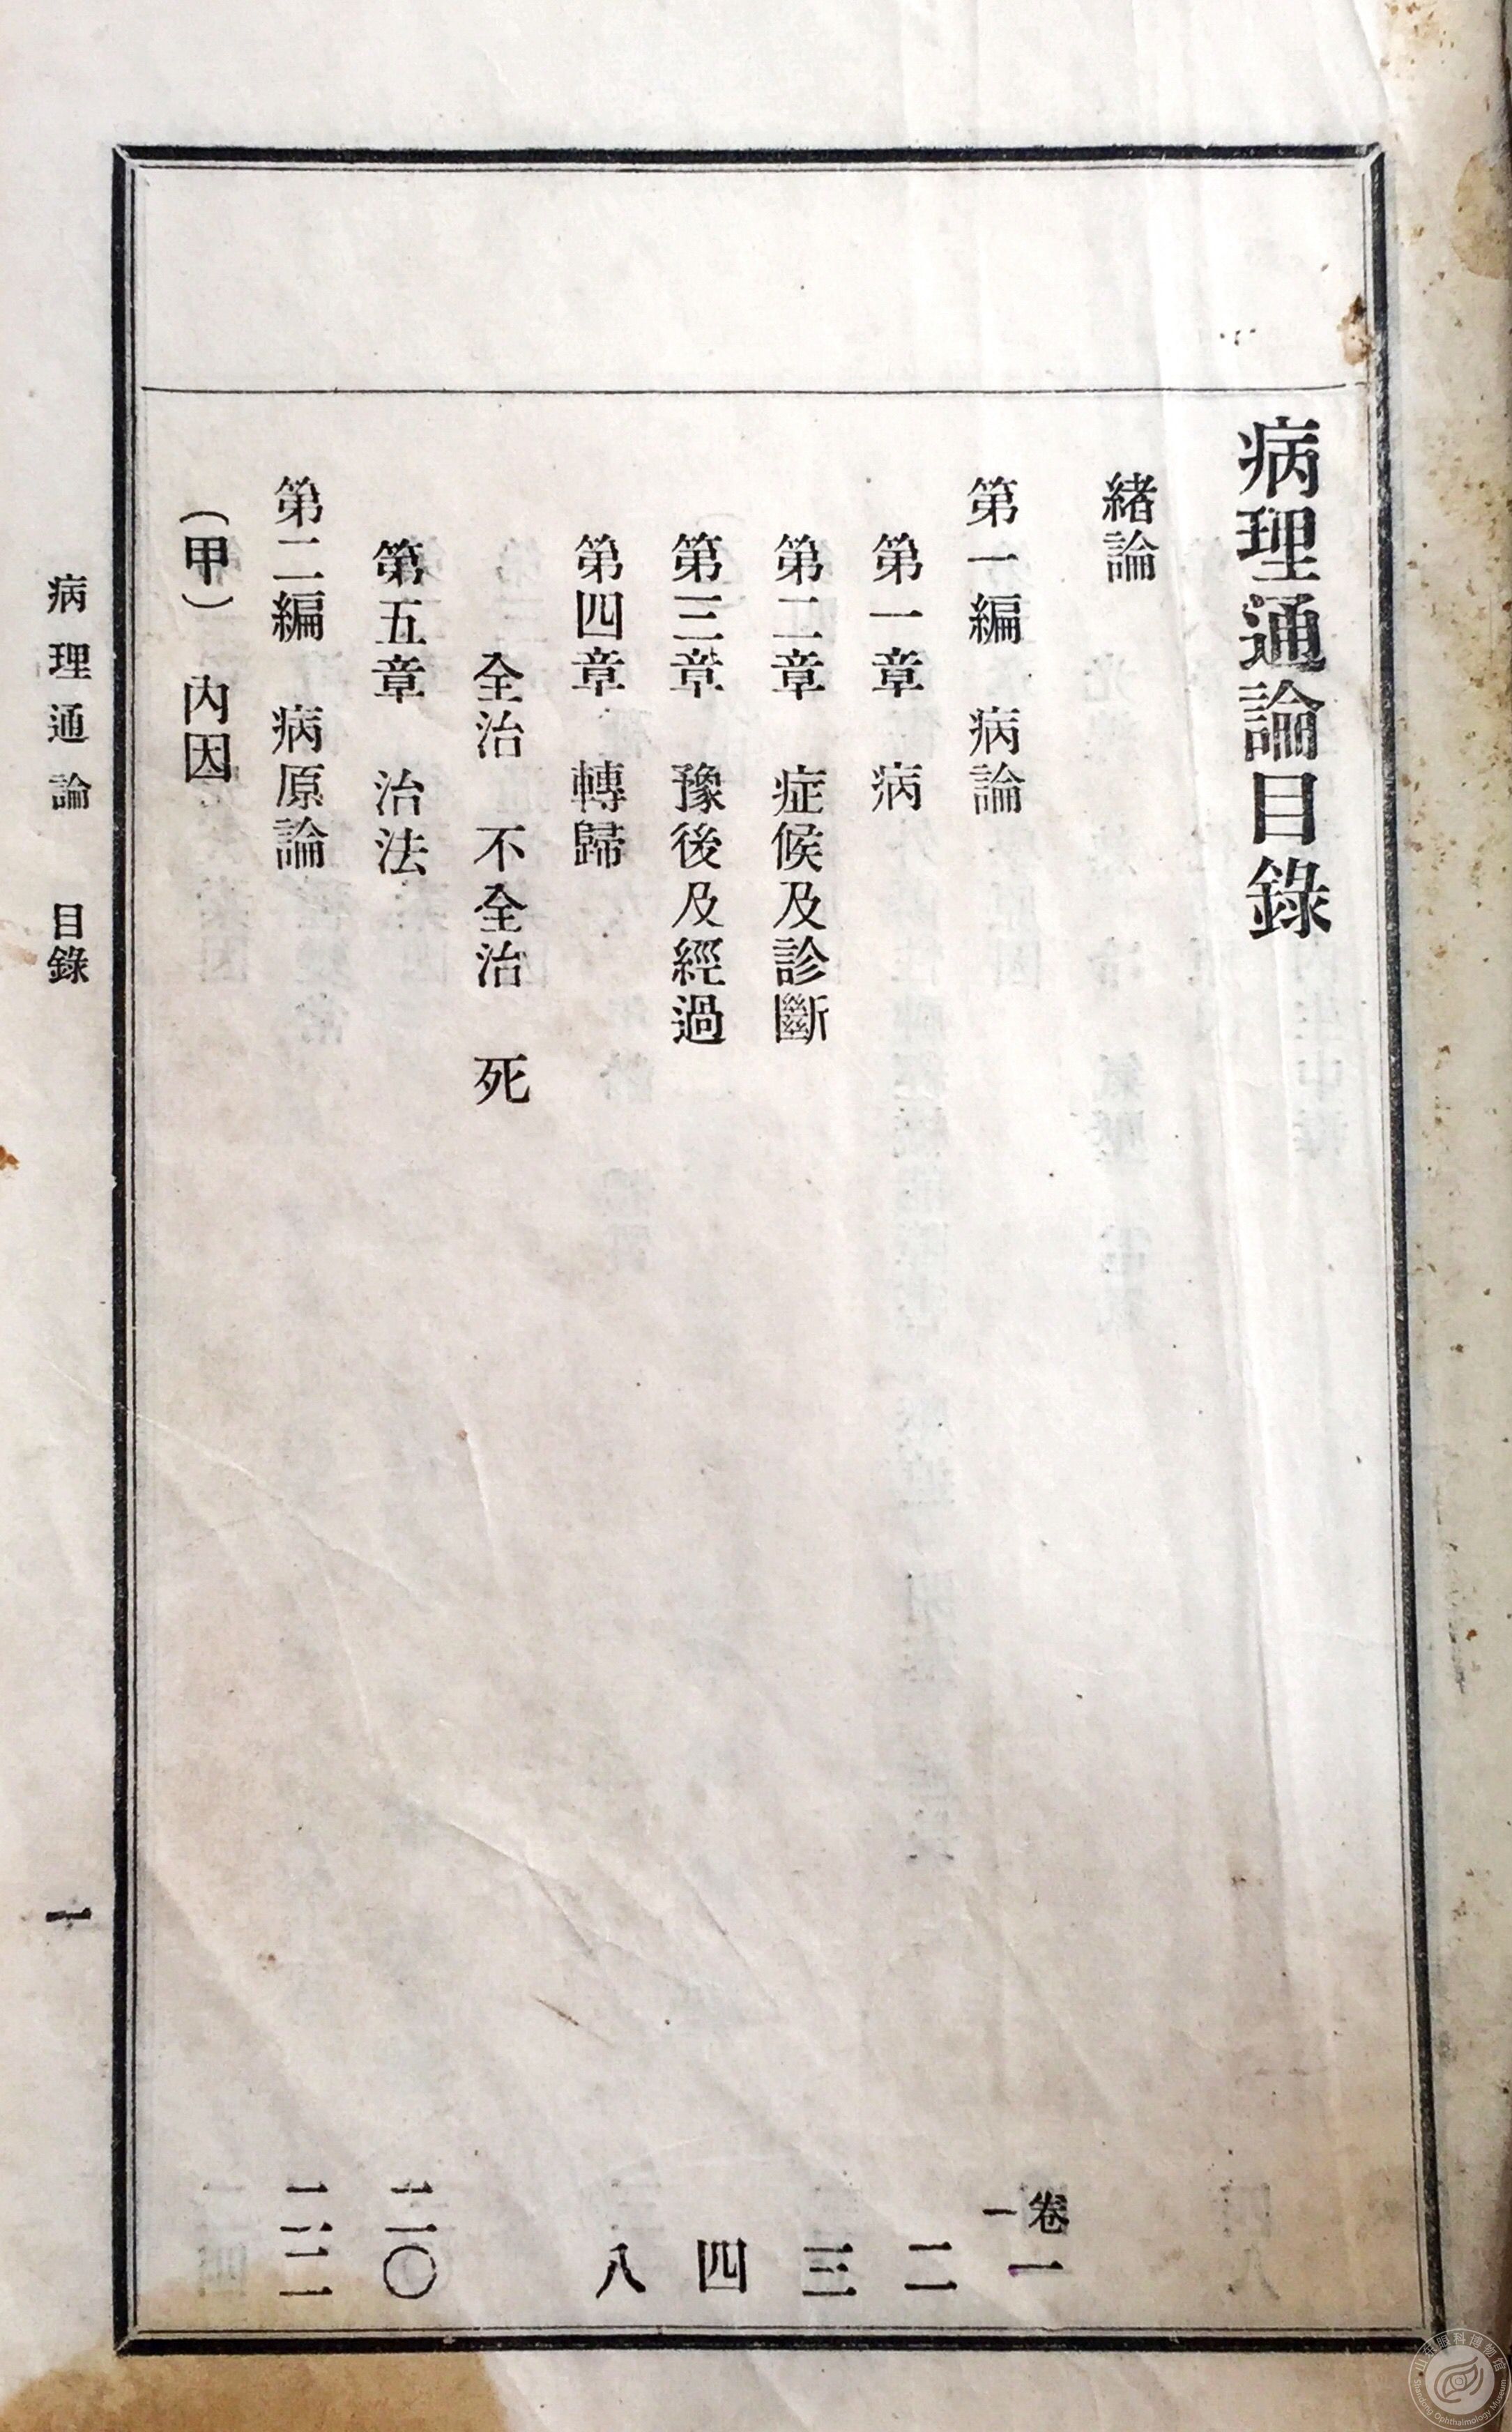 病理通論目錄
緒論
第一編 病論 卷一 一
第一章 病 二
第二章 症候及診斷 三
第三章 豫後及經過 四
第四章 轉歸 八
全治 不全治 死
第五章 治法 二〇
第二編 病原論 二二
(甲) 內因
病理通論 目錄 一
山东眼科博物馆
Shandong Ophthalmology Museum